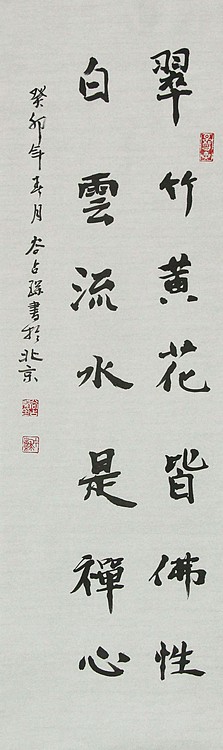 翠竹黄花皆佛性
白雲流水是禪心
癸卯年春月谷占琛書於北京